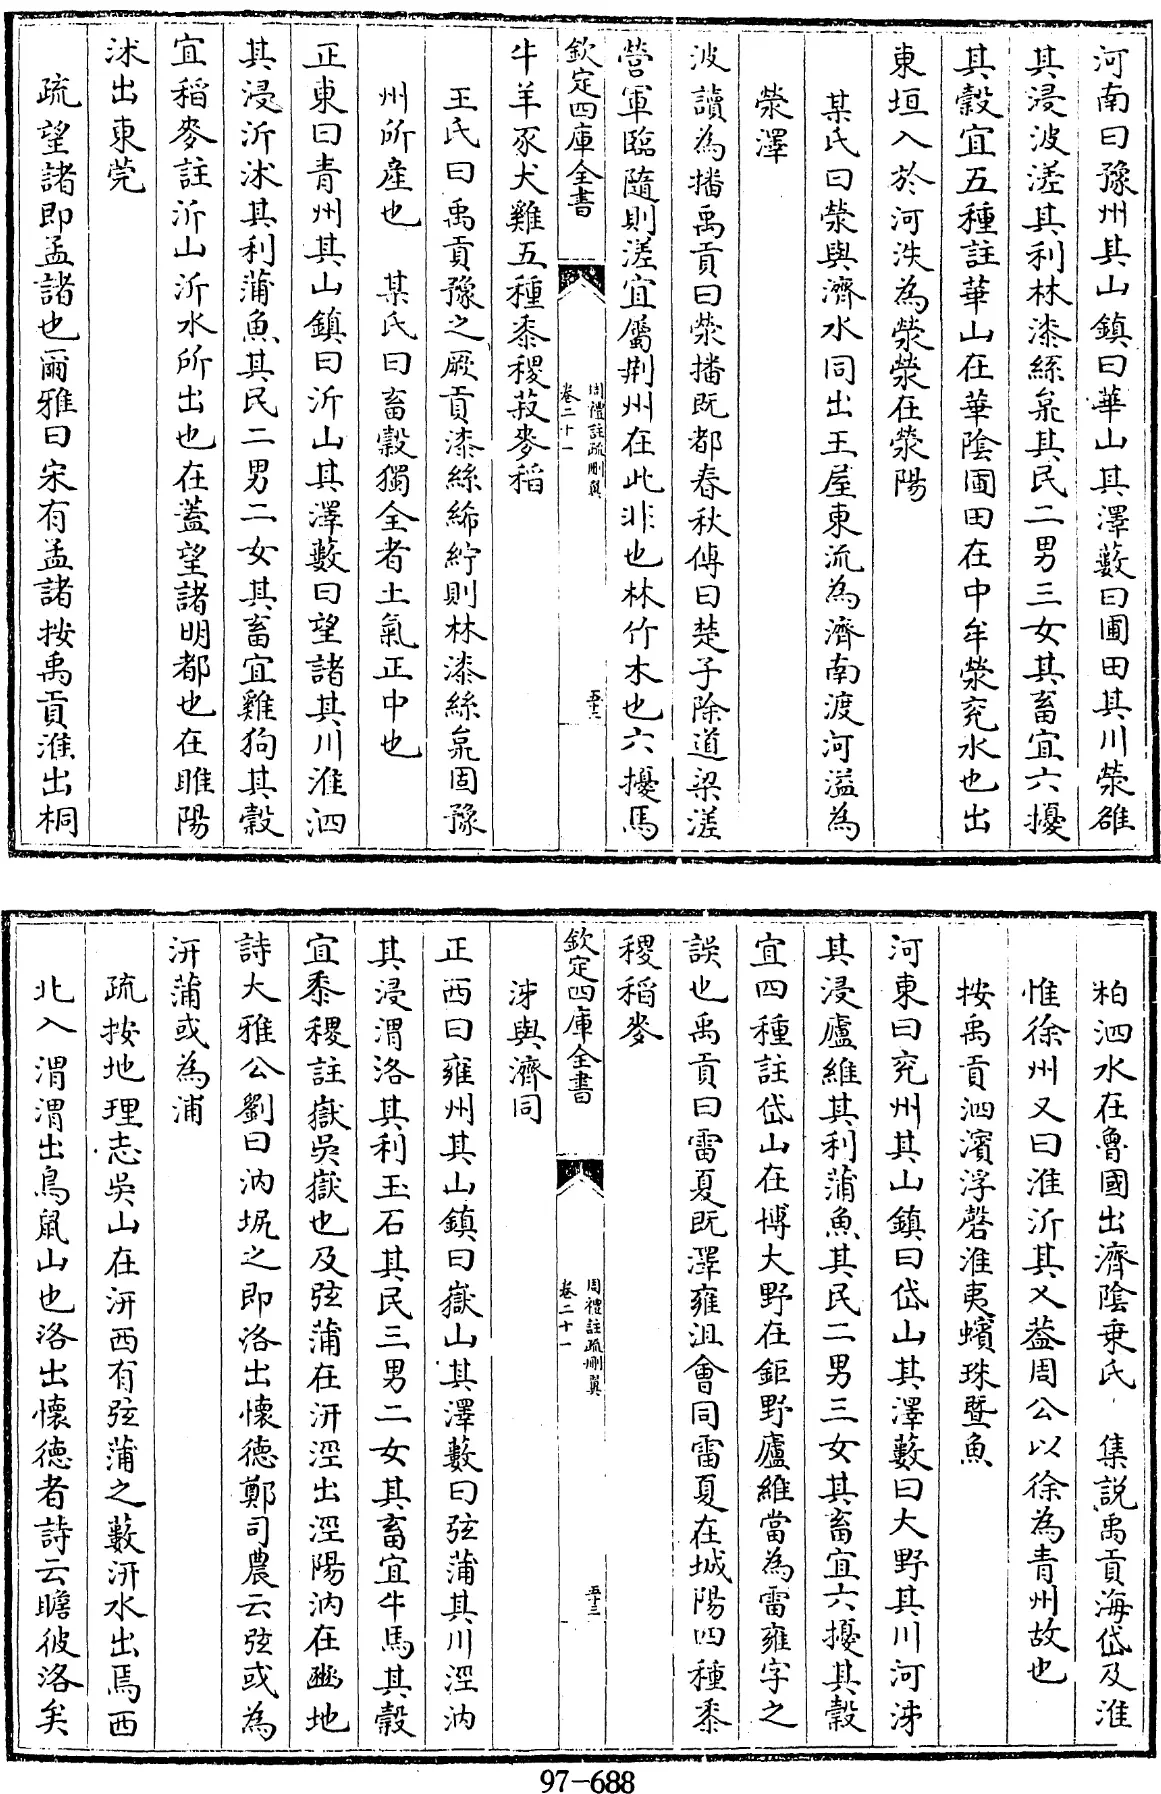 河南曰豫州其山鎮曰華山其澤藪曰圃田其川滎雒
其浸波溠其利林漆絲枲其民二男三女其畜宜六擾
其穀宜五種註華山在華陰圃田在中牟滎兖水也出
東垣入於河泆為滎滎在滎陽
某氏曰滎與濟水同出王屋東流為濟南渡河溢為
滎澤
波讀為播禹貢曰滎播既都春秋傳曰楚子除道梁溠
營軍臨隨則溠宜屬荆州在此非也林竹木也六擾馬
欽定四庫全書
周禮註疏刪翼
卷二十一
五十二
牛羊豕犬雞五種黍稷菽麥稻
王氏曰禹貢豫之厥貢漆絲絺紵則林漆絲枲固豫
州所産也 某氏曰畜穀獨全者土氣正中也
正東曰青州其山鎮曰沂山其澤藪曰望諸其川淮泗
其浸沂沭其利蒲魚其民二男二女其畜宜雞狗其穀
宜稻麥註沂山沂水所出也在蓋望諸明都也在睢陽
沭出東莞
疏望諸即孟諸也爾雅曰宋有孟諸按禹貢淮出桐
柏泗水在魯國出濟陰乗氏 集説禹貢海岱及淮
惟徐州又曰淮沂其乂葢周公以徐為青州故也
按禹貢泗濱浮磬淮夷蠙珠曁魚
河東曰兖州其山鎮曰岱山其澤藪曰大野其川河泲
其浸廬維其利蒲魚其民二男三女其畜宜六擾其穀
宜四種註岱山在博大野在鉅野廬維當為雷雍字之
誤也禹貢曰雷夏既澤雍沮會同雷夏在城陽四種黍
稷稻麥
欽定四庫全書
周禮註疏刪翼
卷二十一
五十三
泲與濟同
正西曰雍州其山鎮曰嶽山其澤藪曰弦蒲其川涇汭
其浸渭洛其利玉石其民三男二女其畜宜牛馬其穀
宜黍稷註嶽吳嶽也及弦蒲在汧涇出涇陽汭在豳地
詩大雅公劉曰汭坭之即洛出懷德鄭司農云弦或為
汧蒲或為浦
疏按地理志吳山在汧西有弦蒲之藪汧水出焉西
北入渭渭出鳥鼠山也洛出懷德者詩云瞻彼洛矣
97-688